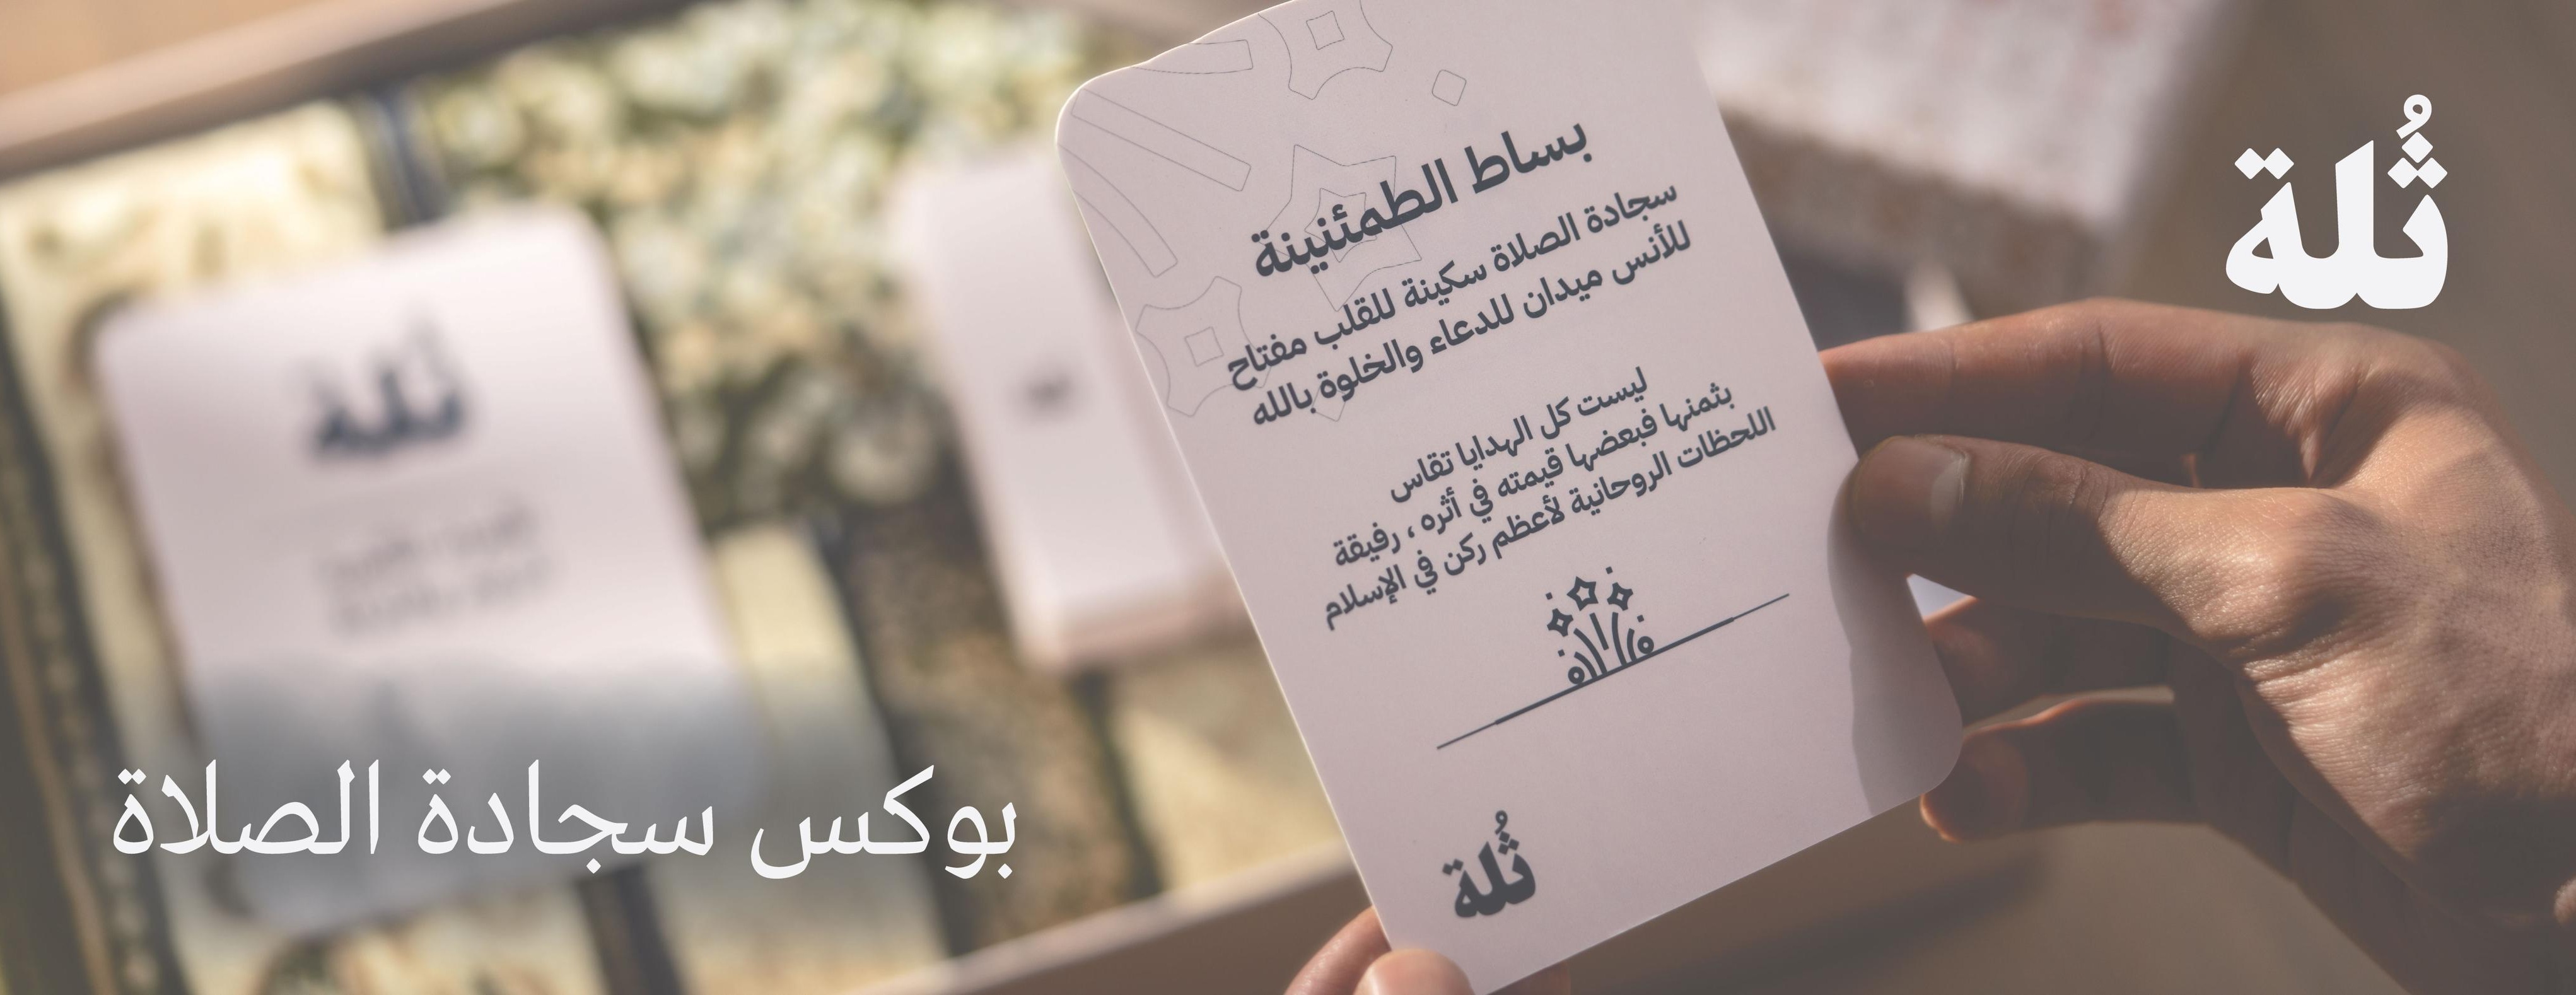 ثُلة
بساط الطمئنينة
سجادة الصلاة سكينة للقلب مفتاح
للأنس ميدان للدعاء والخلوة بالله
ليست كل الهدايا تقاس
بثمنها فبعضها قيمته في أثره ، رفيقة
اللحظات الروحانية لأعظم ركن في الإسلام
ثُلة
ثُلة
بوكس سجادة الصلاة